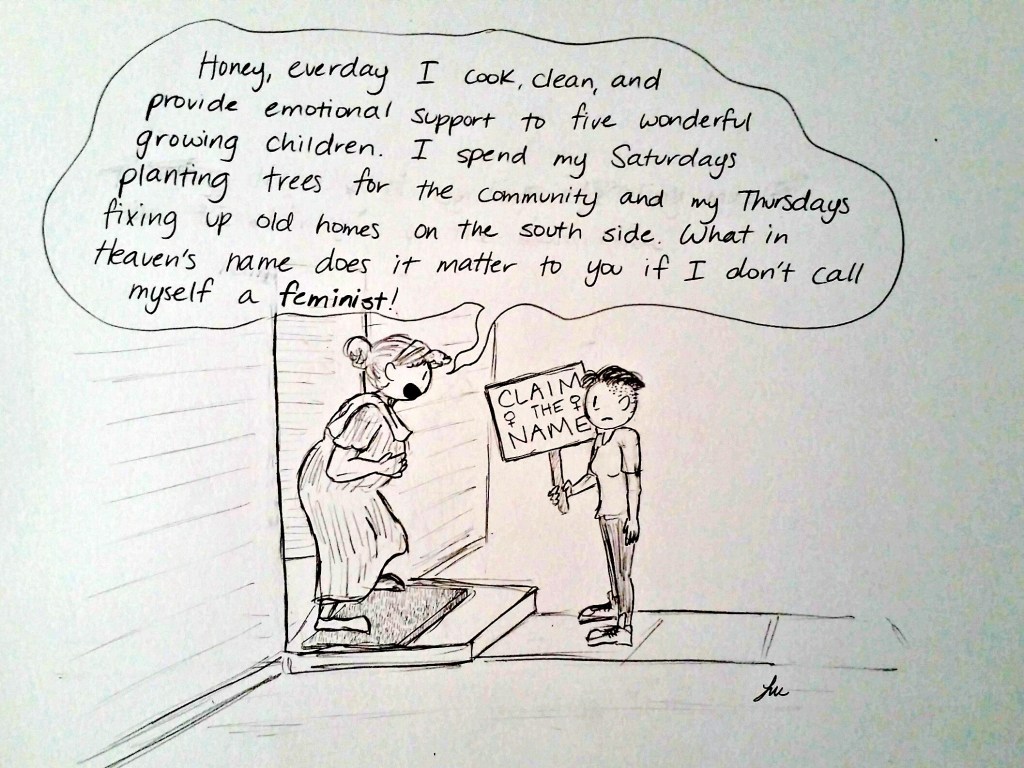 Honey, everday I cook, clean, and
provide emotional support to five wonderful
growing children. I spend my Saturdays
planting trees for the community and my Thursdays
fixing up old homes on the south side. What in
Heaven's name does it matter to you if I don't call
myself a feminist!
CLAIM
♀ THE ♀
NAME